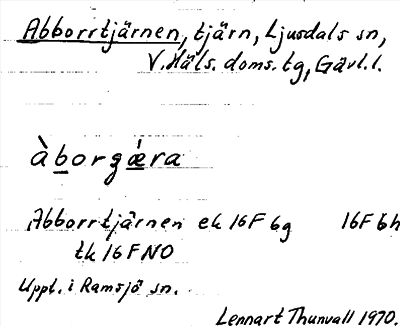 Abborrtjärnen, tjärn, Ljusdals sn,
V. Häls. doms. tg, Gävl. l.
àborgǽra
Abborrtjärnen ek 16F 6g 16F 6h
tk 16F NO
Uppt. i Ramsjö sn.
Lennart Thunvall 1970.